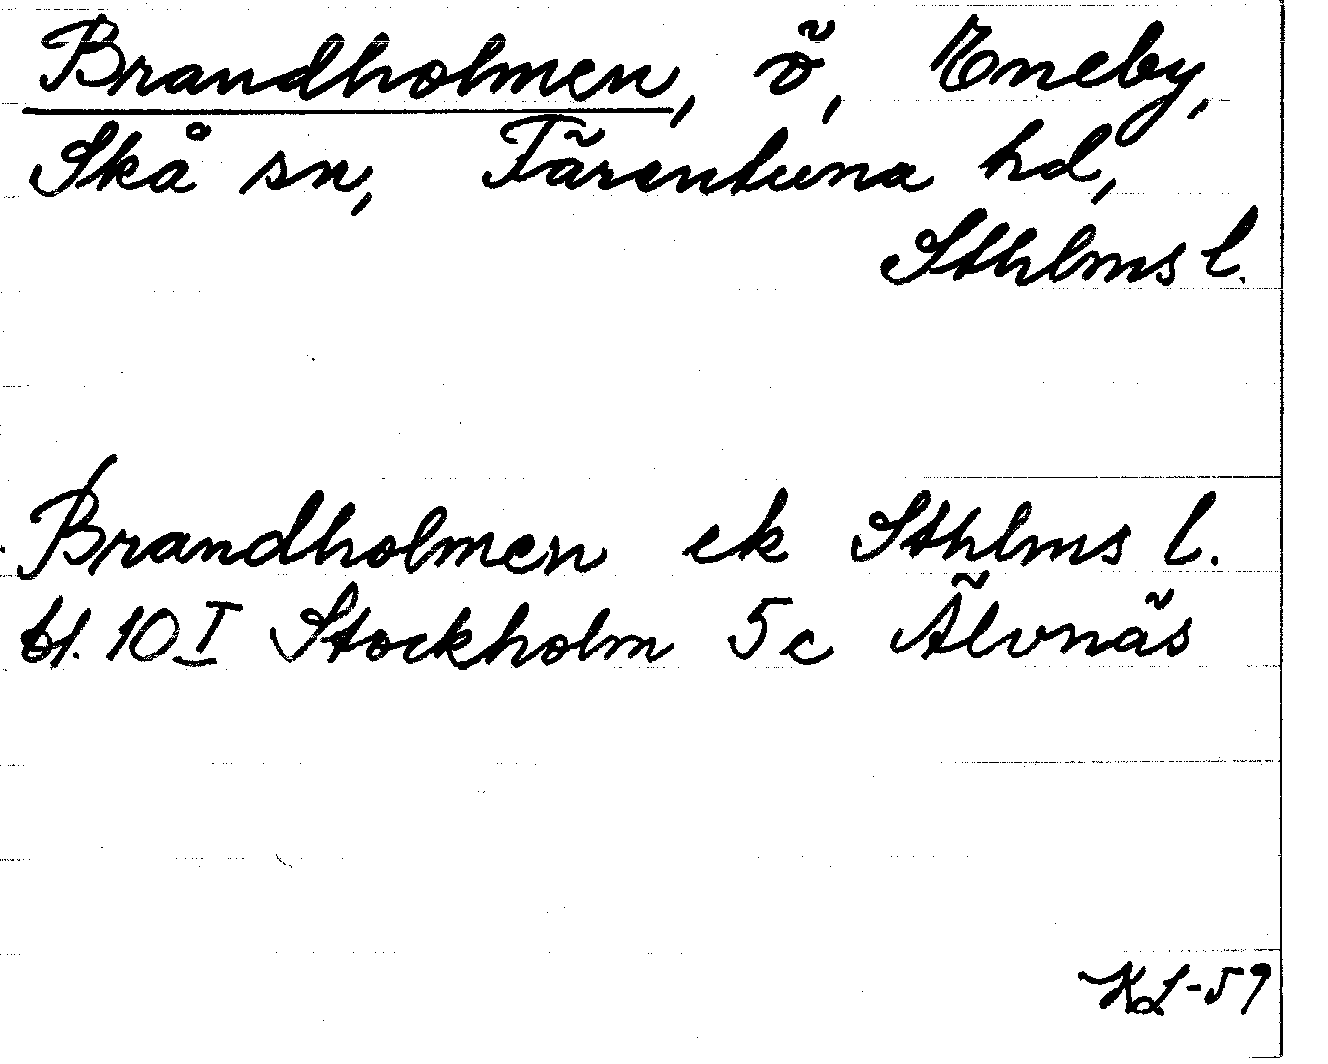 Brandholmen, ö, Eneby,
Skå sn, Färentuna hd,
Sthlms l.
Brandholmen ek Sthlms l.
bl. 10 I Stockholm 5c Älvnäs
KL-59